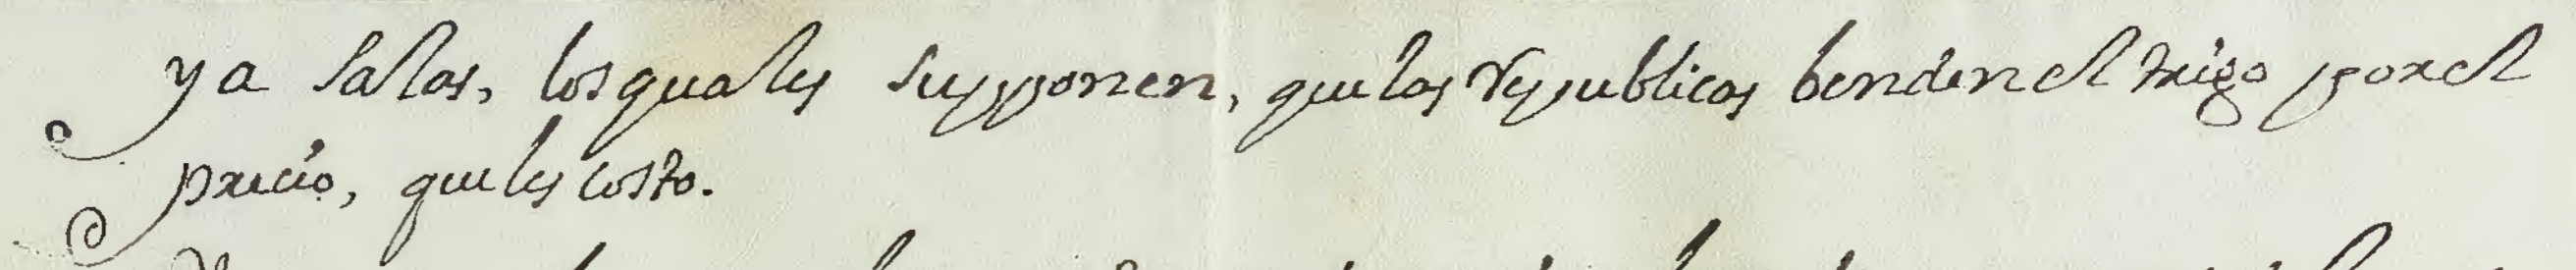 y a Salas, los quales supponen, que las Republicas benden el trigo por el
precio, que les costo.